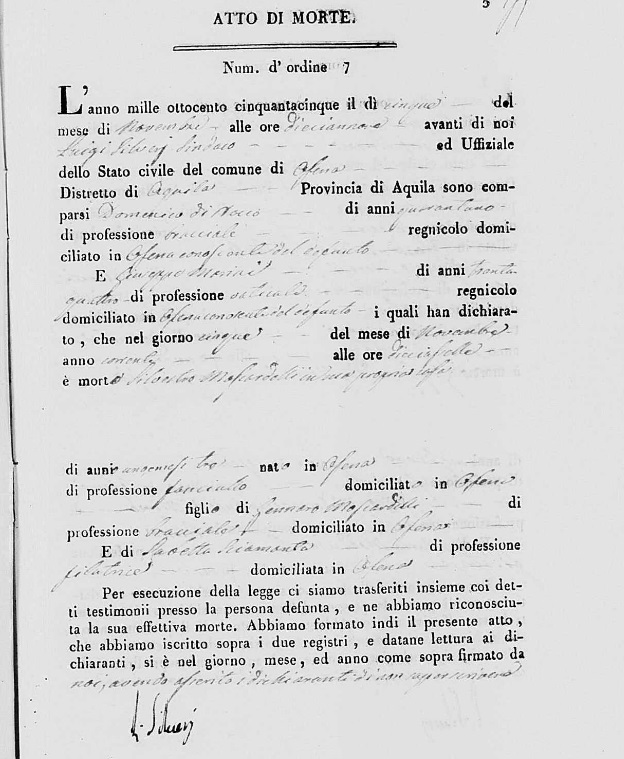 ATTO DI MORTE.
Num. d' ordine 7
L'anno mille ottocento cinquantacinque il dì cinque del
mese di Novembre alle ore diciannove avanti di noi
Luigi Silverj Sindaco ed Uffiziale
dello Stato civile del comune di Ofena
Distretto di Aquila Provincia di Aquila sono com-
parsi Domenico di Rocco di anni quarantuno
di professione bracciale regnicolo domi-
ciliato in Ofena conoscente del defunto
E Giuseppe Marini di anni trenta
quattro di professione regnicolo
domiciliato in Ofena conoscente del defunto i quali han dichiara-
to, che nel giorno cinque del mese di Novembre
anno corrente alle ore diciasette
è morto Silvestro Moscardelli in sua propria casa
di anni uno mesi tre nato in Ofena
di professione fanciullo domiciliato in Ofena
figlio di Gennaro Moscardelli di
professione bracciale domiciliato in Ofena
E di di professione
filatrice domiciliata in Ofena
Per esecuzione della legge ci siamo trasferiti insieme coi det-
ti testimonii presso la persona defunta, e ne abbiamo riconosciu-
ta la sua effettiva morte. Abbiamo formato indi il presente atto,
che abbiamo iscritto sopra i due registri, e datane lettura ai di-
chiaranti, si è nel giorno, mese, ed anno come sopra firmato da
noi, avendo asserito i dichiaranti di non saper scrivere
L. Silverj